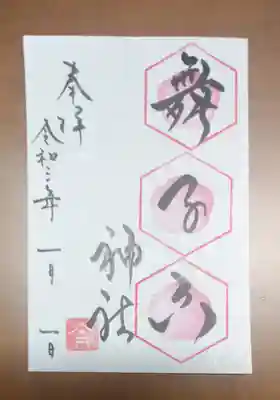 舞子六
神社
奉拝
令和三年 一月 一日